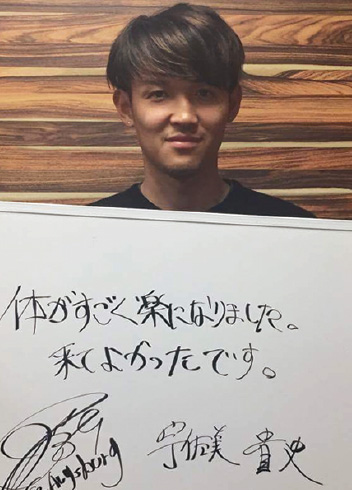 体がすごく楽になりました。
来てよかったです。
Augsburg 宇佐美 貴史